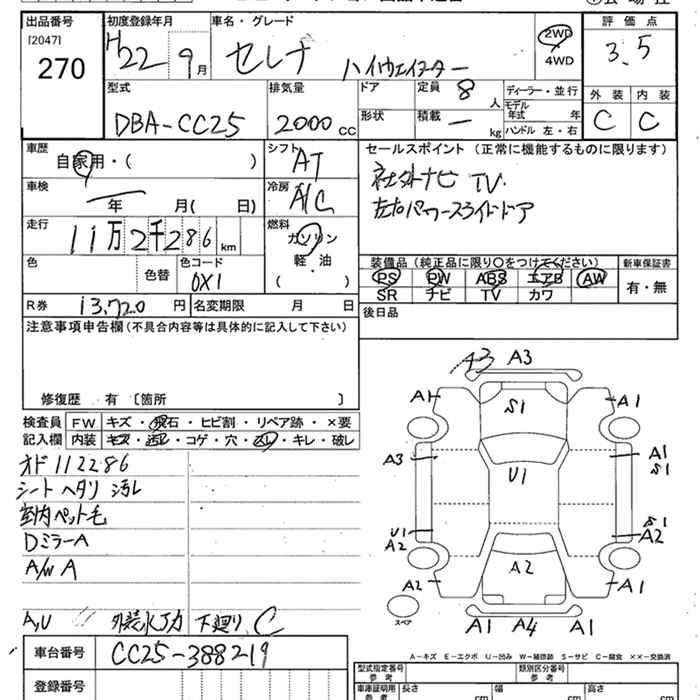 出品番号
[2047]
270
初度登録年月
H22 9月
車名・グレード
セレナ ハイウェイスター
2WD
4WD
評価点
3.5
型式
DBA-CC25
排気量
2000 CC
ドア
形状
定員 8 人
積載 ー kg
ディーラー・並行
モデル年式 年
ハンドル 左・右
外装 内装
C C
車歴
自家用・( )
シフト
AT
車検
年 月( 日)
冷房
A/C
走行
11万2千286 km
燃料
ガソリン
軽・油
( )
色
色替
色コード
0X1
R券 13,720 円
名変期限 月 日
セールスポイント (正常に機能するものに限ります)
社外ナビ TV.
左右パワースライドドア
装備品(純正品に限り〇をつけてください)
PS PW ABS エアB AW
SR ナビ TV カワ
新車保証書
有・無
後日品
注意事項申告欄(不具合内容等は具体的に記入して下さい)
修復歴 有 〔箇所 〕
検査員
記入欄
FW キズ・飛石・ヒビ割・リペア跡・×要
内装 キズ・汚レ・コゲ・穴・スレ・キレ・破レ
オド112286
シートヘタリ 汚レ
室内ペット毛
DミラーA
A/W A
A,U 〃 外装水アカ 下廻りC
車台番号 CC25-388219
登録番号
A3 A3
A1 S1 A1
A3 U1 A1 S1
U1 A2 S1 A2
A2 A2 A1
スペア
A1 A4 A1
A-キズ E-エクボ U-凹み W-補修跡 S-サビ C-腐食 ××-交換済
型式指定番号 参考
類別区分番号 参考
車庫証明用 参考
長さ cm 幅 cm 高さ cm